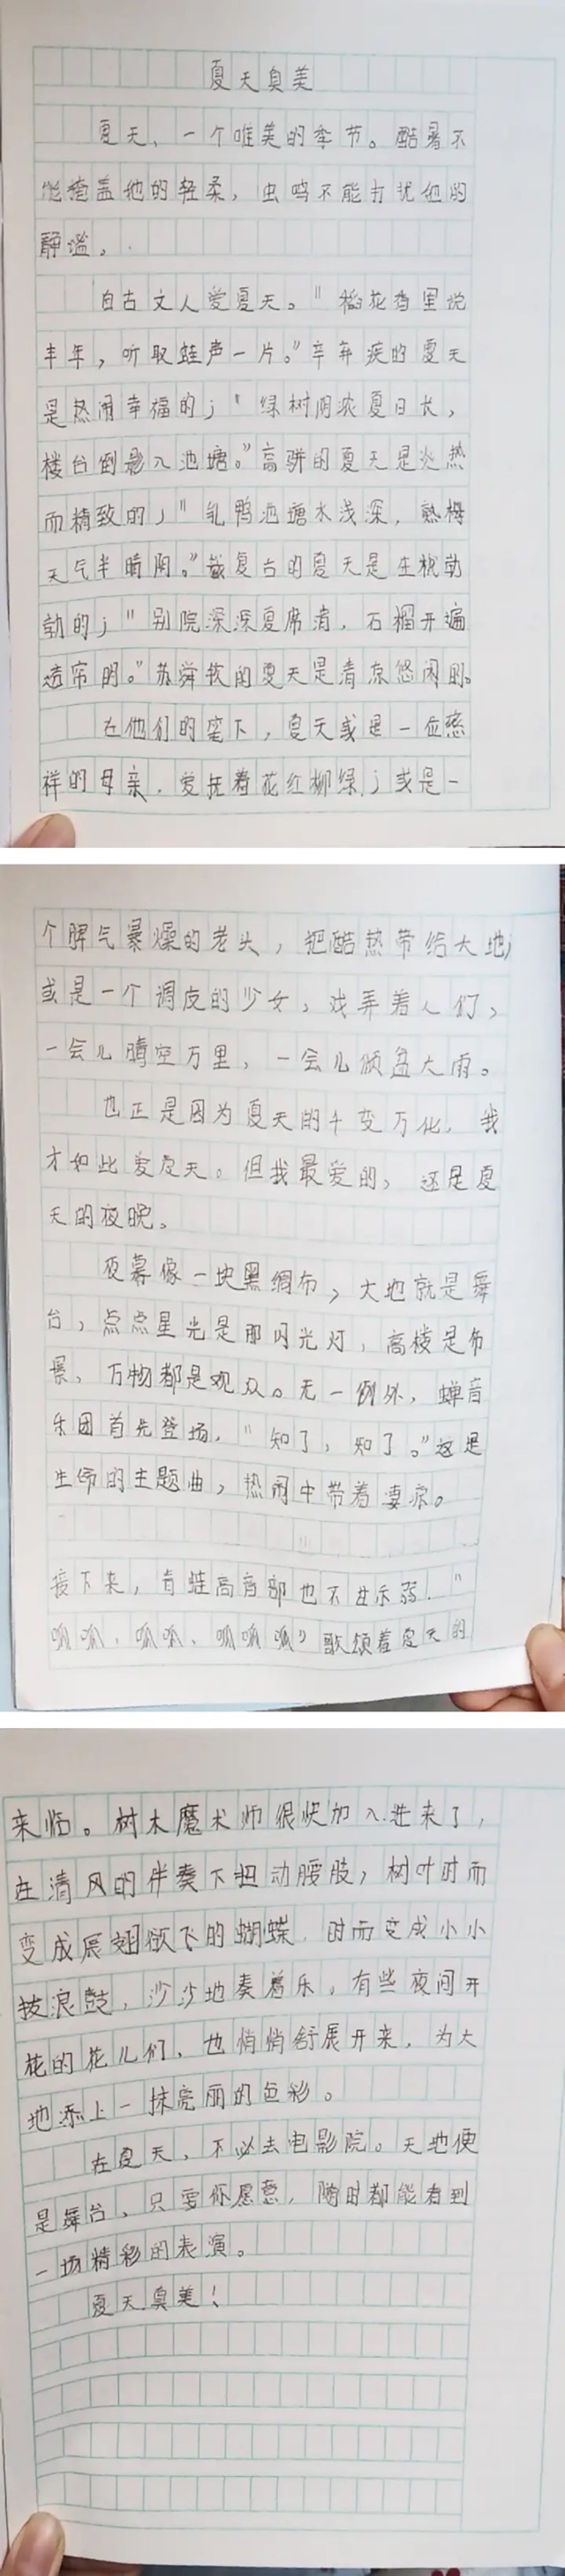 夏天真美
夏天、一个唯美的季节。酷暑不
能掩盖他的轻柔，虫鸣不能打扰他的
静谧。
自古文人爱夏天。"稻花香里说
丰年，听取蛙声一片。"辛弃疾的夏天
是热闹幸福的；"绿树阴浓夏日长，
楼台倒影入池塘。"高骈的夏天是火热
而精致的；"乳鸭池塘水浅深，熟梅
天气半晴阴。"戴复古的夏天是生机勃
勃的；"别院深深夏席清，石榴开遍
透帘明。"苏舜钦的夏天是清凉悠闲的。
在他们的笔下，夏天或是一位慈
祥的母亲，爱抚着花红柳绿；或是一
个脾气暴燥的老头，把酷热带给大地；
或是一个调皮的少女，戏弄着人们，
一会儿晴空万里，一会儿倾盆大雨。
也正是因为夏天的千变万化，我
才如此爱夏天。但我最爱的，还是夏
天的夜晚。
夜幕像一块黑绸布，大地就是舞
台，点点星光是那闪光灯，高楼是布
景，万物都是观众。无一例外，蝉音
乐团首先登场，"知了，知了。"这是
生命的主题曲，热闹中带着凄凉。
接下来，青蛙高音部也不甘示弱，"
呱呱、呱呱、呱呱呱"歌颂着夏天的
来临。树木魔术师很快加入进来了，
在清风的伴奏下扭动腰肢，树叶时而
变成展翅欲飞的蝴蝶，时而变成小小
拨浪鼓，沙沙地奏着乐，有些夜间开
花的花儿们，也悄悄舒展开来，为大
地添上一抹亮丽的色彩。
在夏天，不必去电影院。天地便
是舞台，只要你愿意，随时都能看到
一场精彩的表演。
夏天真美！